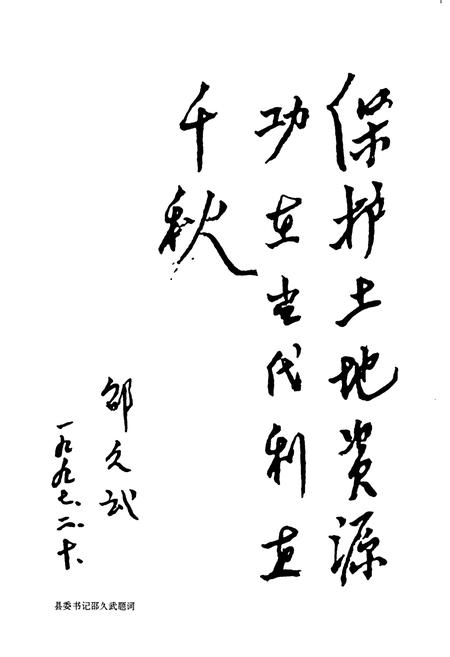 保护土地资源
功在当代利在
千秋
邵久武
一九九七、二、十、
县委书记邵久武题词